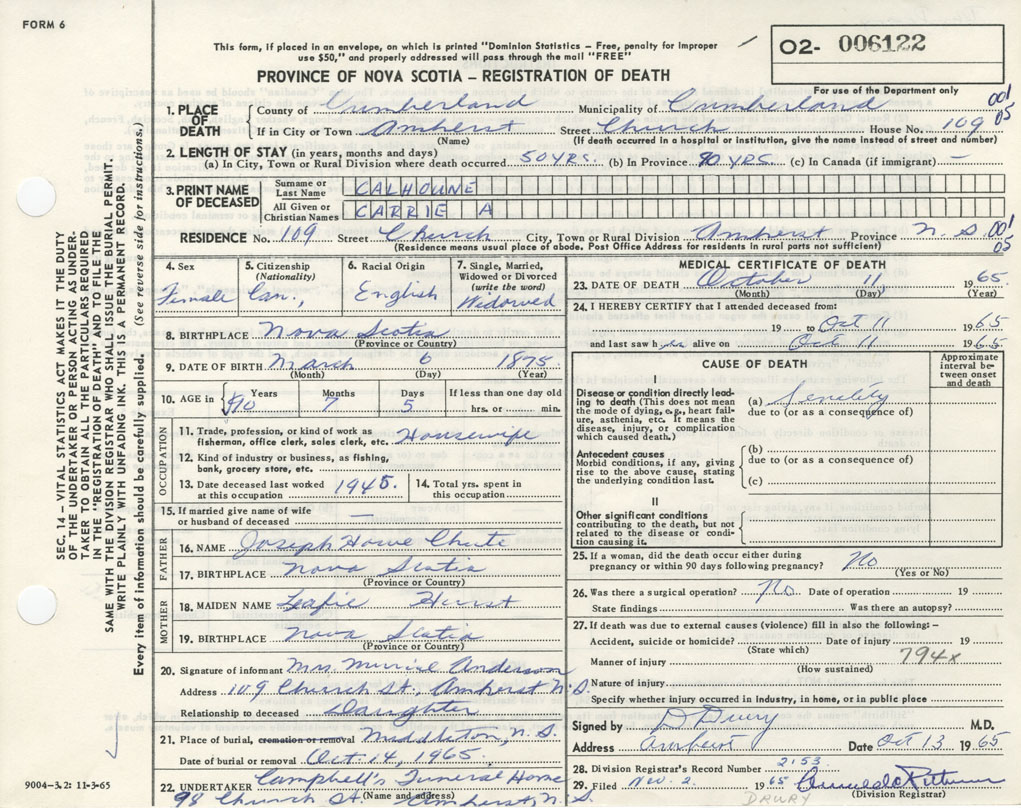 FORM 6
This form, if placed in an envelope, on which is printed "Dominion Statistics – Free, penalty for improper
use $50," and properly addressed will pass through the mail "FREE"
02- 006122
For use of the Department only
PROVINCE OF NOVA SCOTIA – REGISTRATION OF DEATH
SEC. 14 – VITAL STATISTICS ACT MAKES IT THE DUTY
OF THE UNDERTAKER OR PERSON ACTING AS UNDER-
TAKER TO OBTAIN ALL THE PARTICULARS REQUIRED
IN THE "REGISTRATION OF DEATH" AND TO FILE THE
SAME WITH THE DIVISION REGISTRAR WHO SHALL ISSUE THE BURIAL PERMIT.
WRITE PLAINLY WITH UNFADING INK. THIS IS A PERMANENT RECORD.
Every item of information should be carefully supplied. (See reverse side for instructions.)
1. PLACE OF DEATH County of Cumberland Municipality of Cumberland 001
05
If in City or Town Amherst Street Church House No. 109
(Name) (If death occurred in a hospital or institution, give the name instead of street and number)
2. LENGTH OF STAY (in years, months and days)
(a) In City, Town or Rural Division where death occurred 50 YRS. (b) In Province 90 YRS. (c) In Canada (if immigrant) —
3. PRINT NAME OF DECEASED
Surname or Last Name CALHOUNE
All Given or Christian Names CARRIE A
RESIDENCE No. 109 Street Church City, Town or Rural Division Amherst Province N.S. 001
05
(Residence means usual place of abode, Post Office Address for residents in rural parts not sufficient)
4. Sex Female
5. Citizenship (Nationality) Can.,
6. Racial Origin English
7. Single, Married, Widowed or Divorced (write the word) Widowed
8. BIRTHPLACE Nova Scotia
(Province or Country)
9. DATE OF BIRTH March 6 1875
(Month) (Day) (Year)
10. AGE in Years 90 Months 7 Days 5 If less than one day old
hrs. or min.
OCCUPATION
11. Trade, profession, or kind of work as
fisherman, office clerk, sales clerk, etc. Housewife
12. Kind of industry or business, as fishing,
bank, grocery store, etc.
13. Date deceased last worked
at this occupation 1945.
14. Total yrs. spent in
this occupation
15. If married give name of wife
or husband of deceased —
FATHER
16. NAME Joseph Howe Chute
17. BIRTHPLACE Nova Scotia
(Province or Country)
MOTHER
18. MAIDEN NAME Leafie Hurst
19. BIRTHPLACE Nova Scotia
(Province or Country)
20. Signature of informant Mrs. Murriel Anderson
Address 109 Church St., Amherst N.S.
Relationship to deceased Daughter
21. Place of burial, cremation or removal Middleton, N.S.
Date of burial or removal Oct. 14, 1965.
22. UNDERTAKER Campbell's Funeral Home
(Name and address)
98 Church St. Amherst N.S
9004-3.2: 11-3-65
MEDICAL CERTIFICATE OF DEATH
23. DATE OF DEATH October 11 1965
(Month) (Day) (Year)
24. I HEREBY CERTIFY that I attended deceased from:
19 to Oct 11 1965
and last saw her alive on Oct 11 1965
CAUSE OF DEATH
Approximate interval between onset and death
I
Disease or condition directly lead-
ing to death (This does not mean
the mode of dying, e.g., heart fail-
ure, asthenia, etc. It means the
disease, injury, or complication
which caused death.)
(a) Senility
due to (or as a consequence of)
Antecedent causes
Morbid conditions, if any, giving
rise to the above cause, stating
the underlying condition last.
(b)
due to (or as a consequence of)
(c)
II
Other significant conditions
contributing to the death, but not
related to the disease or condi-
tion causing it.
25. If a woman, did the death occur either during
pregnancy or within 90 days following pregnancy? No
(Yes or No)
26. Was there a surgical operation? No Date of operation 19
State findings Was there an autopsy?
27. If death was due to external causes (violence) fill in also the following –
Accident, suicide or homicide? Date of injury 19
(State which)
794x
Manner of injury
(How sustained)
Nature of injury
Specify whether injury occurred in industry, in home, or in public place
Signed by D Drury M.D.
Address Amherst Date Oct 13 1965
28. Division Registrar's Record Number 2153
29. Filed Nov. 2 1965
(Division Registrar)
DRURY